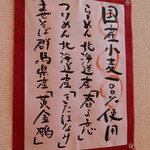 国産小麦100%使用
らーめん 北海道産「春よ恋」
つけめん 北海道産「きたほなみ」
まぜそば 群馬県産「黄金鶴」